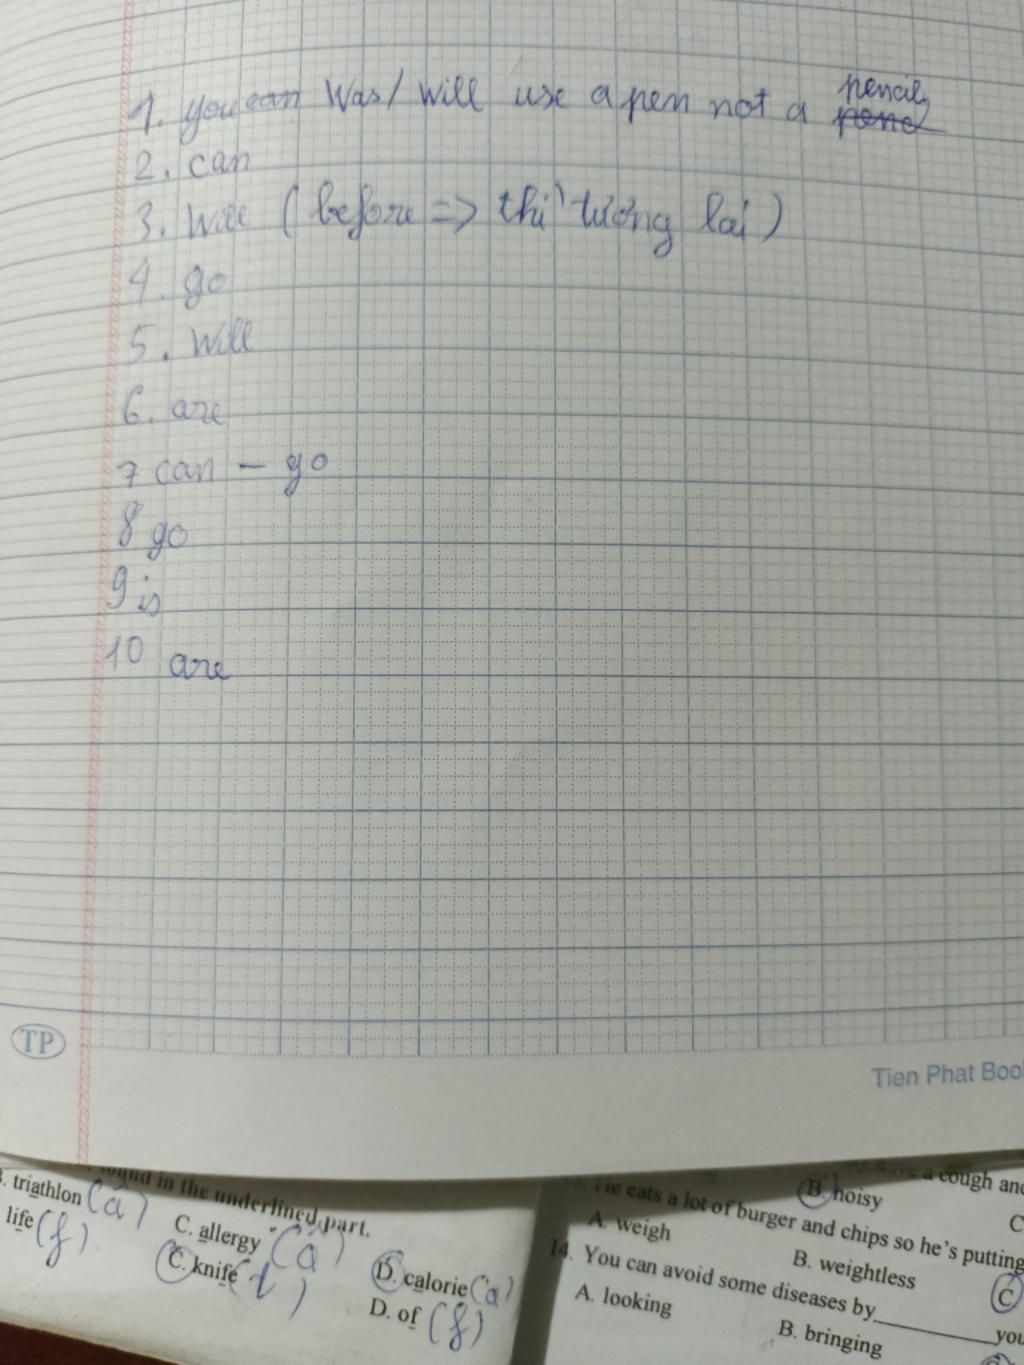 1. you can Was/ Will use a pen not a pencil
2. can
3. Will (before => thì tương lai)
4. go
5. Will
6. are
7 can - go
8 go
9 is
10 are
TP
Tien Phat Boo
ound in the underlined part.
. triathlon (a)
C. allergy (a)
D. calorie (a)
life (f)
C. knife
D. of (f)
a cough and
B. noisy
C
He eats a lot of burger and chips so he's putting
A. weigh
B. weightless
C
14. You can avoid some diseases by_______you
A. looking
B. bringing